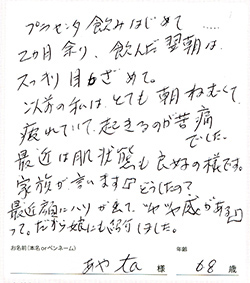 プラセンタ飲みはじめて
2ヵ月余り、飲んだ翌朝は、
スッキリ目がざめて。
以前の私は、とても朝ねむくて、
疲れていて、起きるのが苦痛
でした。
最近は肌状態も良好の様です。
家族が言いますよ どうしたの?
最近顔にハリが出て、ツヤツヤ感がある
って。だから娘にも紹介しました。
お名前(本名orペンネーム) 年齢
様 68歳